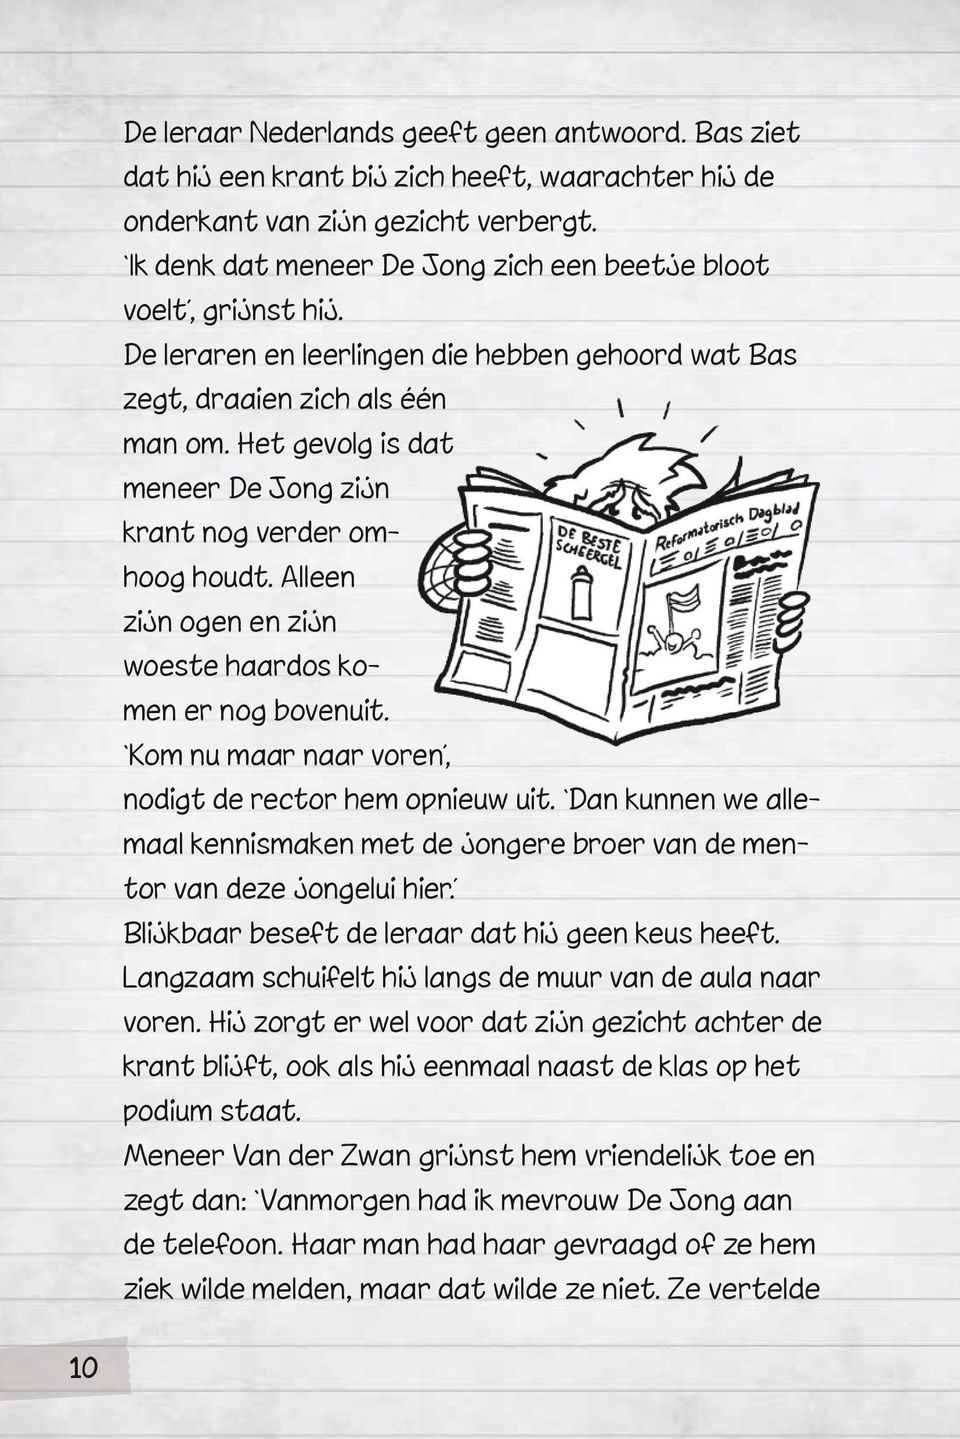 De leraar Nederlands geeft geen antwoord. Bas ziet
dat hij een krant bij zich heeft, waarachter hij de
onderkant van zijn gezicht verbergt.
‘Ik denk dat meneer De Jong zich een beetje bloot
voelt’, grijnst hij.
De leraren en leerlingen die hebben gehoord wat Bas
zegt, draaien zich als één
man om. Het gevolg is dat
meneer De Jong zijn
krant nog verder om-
hoog houdt. Alleen
zijn ogen en zijn
woeste haardos ko-
men er nog bovenuit.
‘Kom nu maar naar voren’,
DE BESTE
SCHEERGEL
Reformatorisch Dagblad
nodigt de rector hem opnieuw uit. ‘Dan kunnen we alle-
maal kennismaken met de jongere broer van de men-
tor van deze jongelui hier.’
Blijkbaar beseft de leraar dat hij geen keus heeft.
Langzaam schuifelt hij langs de muur van de aula naar
voren. Hij zorgt er wel voor dat zijn gezicht achter de
krant blijft, ook als hij eenmaal naast de klas op het
podium staat.
Meneer Van der Zwan grijnst hem vriendelijk toe en
zegt dan: ‘Vanmorgen had ik mevrouw De Jong aan
de telefoon. Haar man had haar gevraagd of ze hem
ziek wilde melden, maar dat wilde ze niet. Ze vertelde
10